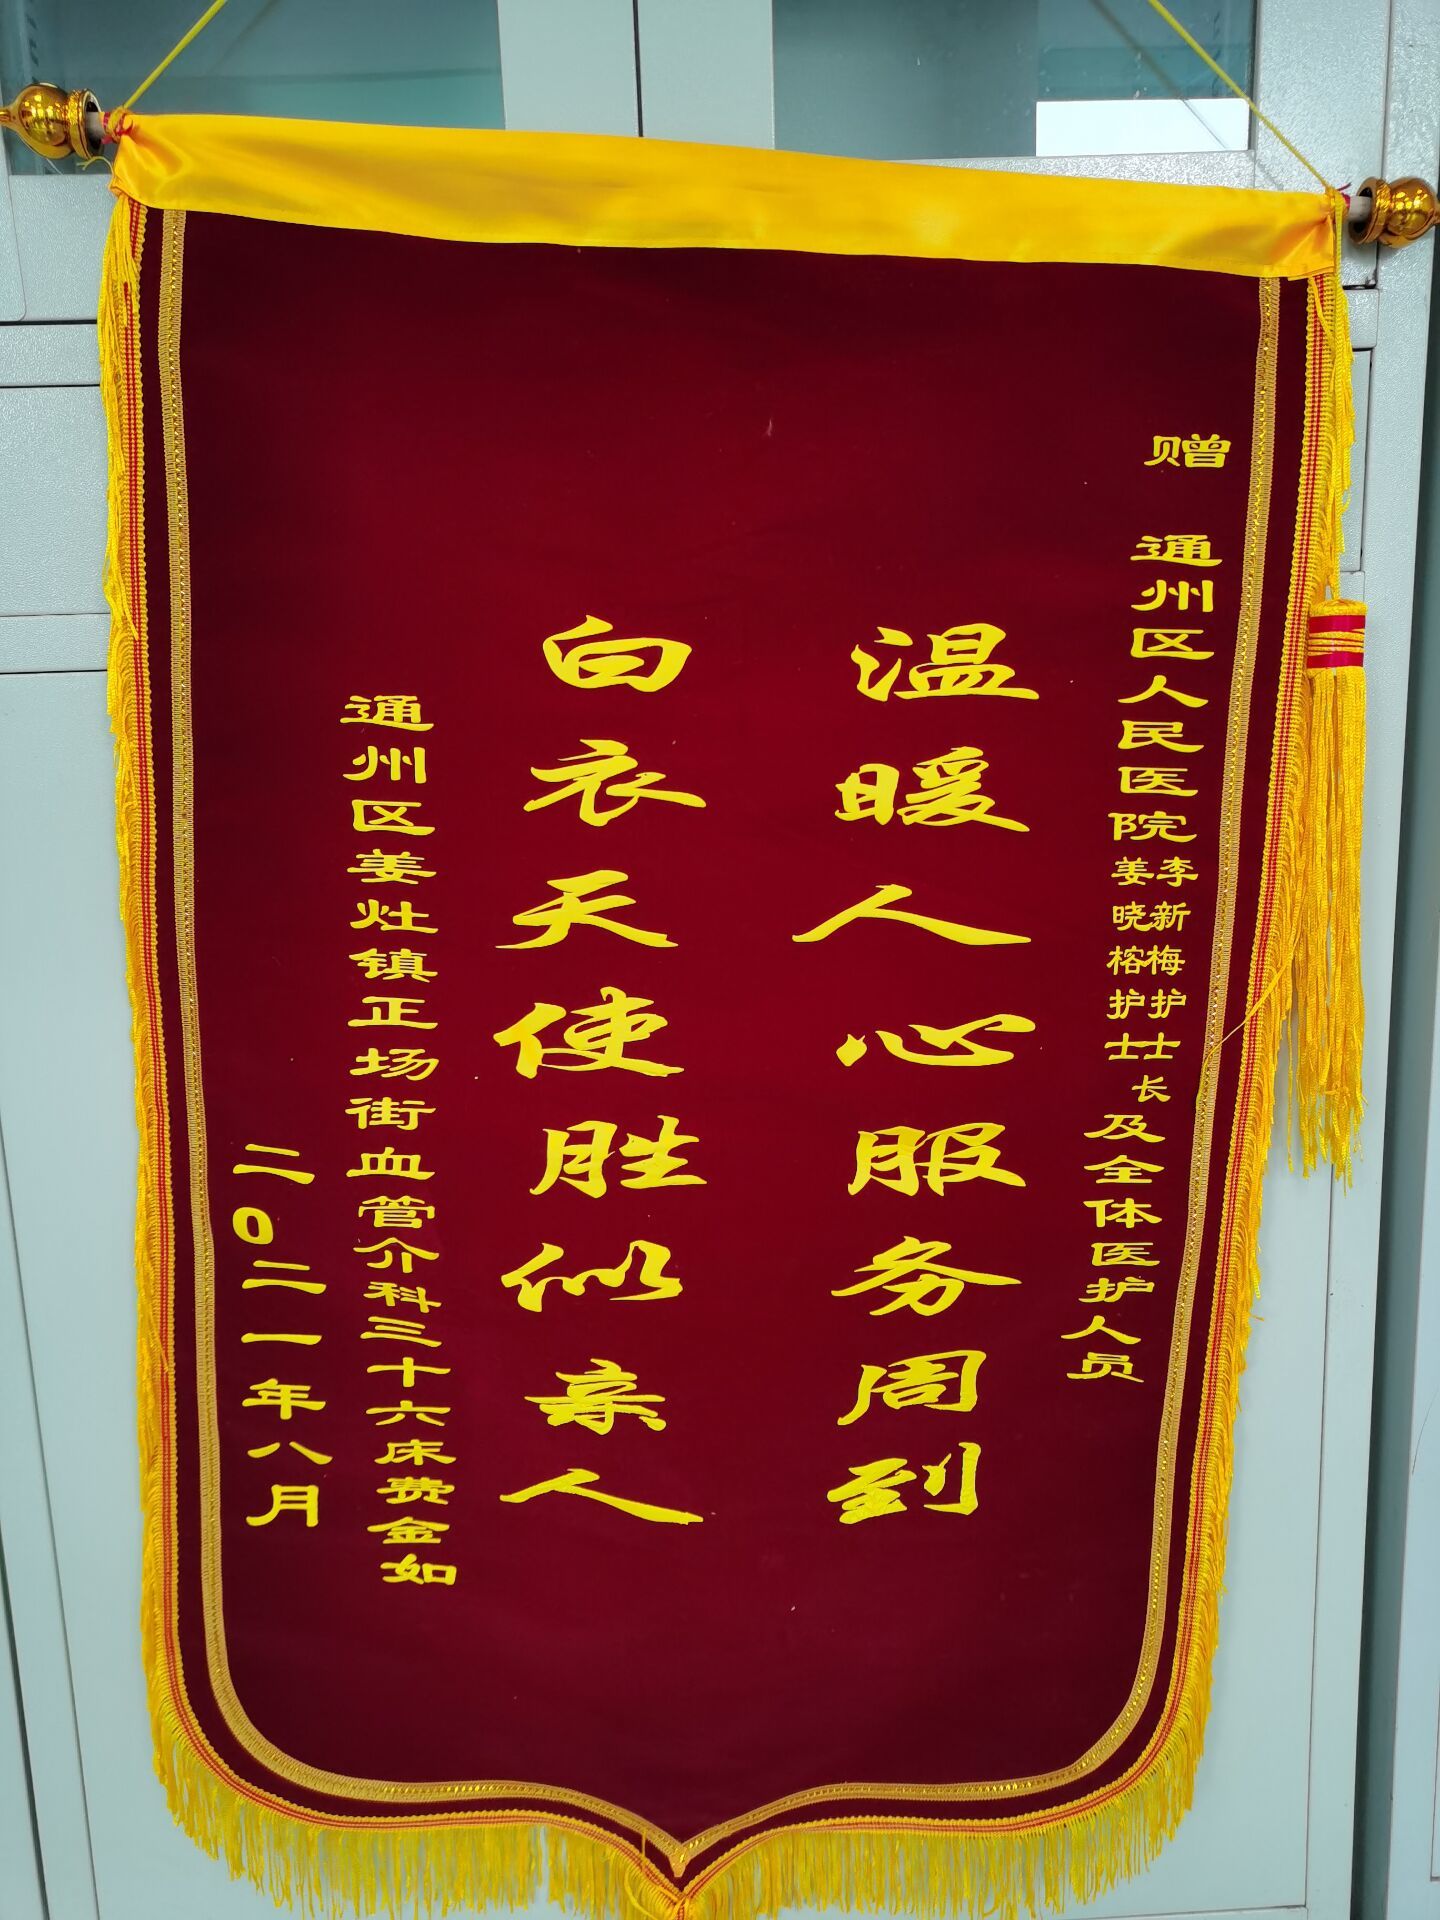 赠 通州区人民医院李新梅护士长
姜晓榕护士
及全体医护人员
温暖人心服务周到
白衣天使胜似亲人
通州区姜灶镇正场街血管介科三十六床费金如
二0二一年八月